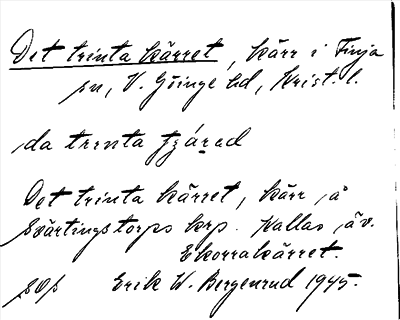 Det trinta kärret, kärr i Finja
sn, V. Göinge hd, Krist. l.
da trenta
Det trinta kärret, kärr, å
Svärtingstorps krp. Kallas äv.
Ekorrakärret.
Erik W. Bergenrud 1945.